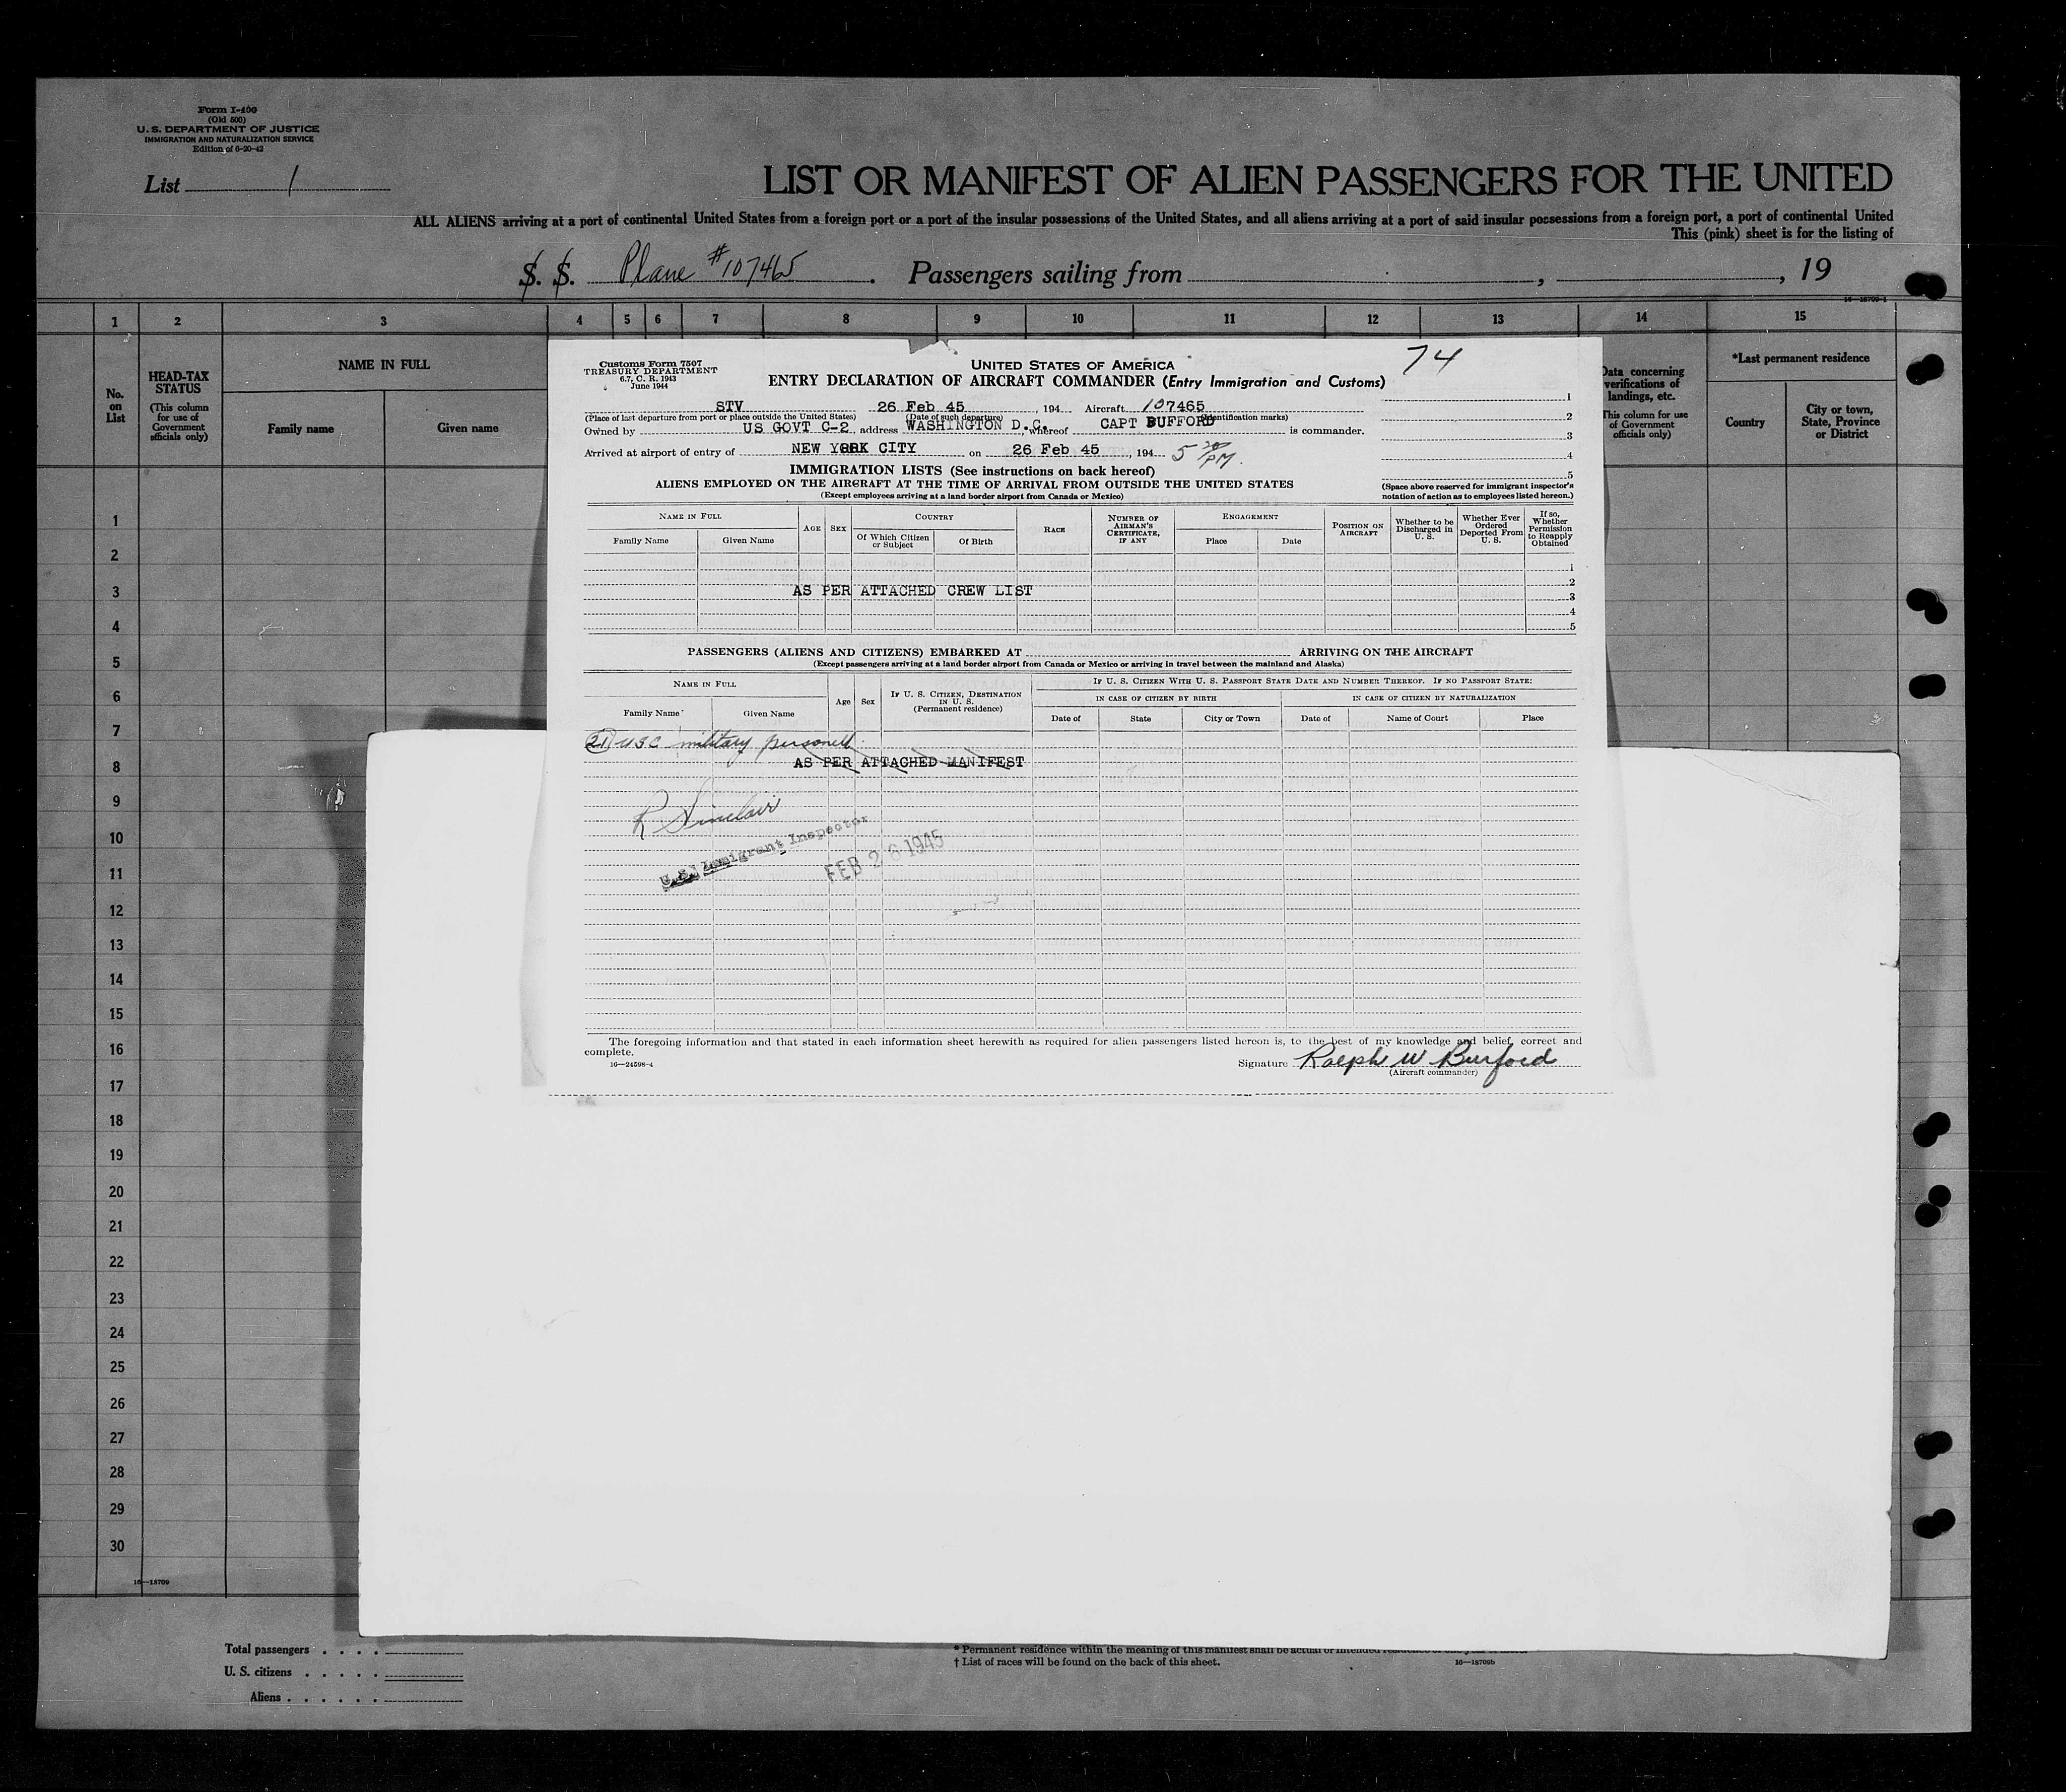 Form I-400
(Old 500)
U. S. DEPARTMENT OF JUSTICE
IMMIGRATION AND NATURALIZATION SERVICE
Edition of 6-20-42
List 1
LIST OR MANIFEST OF ALIEN PASSENGERS FOR THE UNITED
ALL ALIENS arriving at a port of continental United States from a foreign port or a port of the insular possessions of the United States, and all aliens arriving at a port of said insular possessions from a foreign port, a port of continental United
This (pink) sheet is for the listing of
S. S. Plane #107465. Passengers sailing from , , 19
16—18709-1
1 2 3 4 5 6 7 8 9 10 11 12 13 14 15
No. on List
HEAD-TAX STATUS
(This column for use of Government officials only)
NAME IN FULL
Family name Given name
Data concerning verifications of landings, etc.
This column for use of Government officials only)
*Last permanent residence
Country City or town, State, Province or District
Customs Form 7507
TREASURY DEPARTMENT
6.7, C. R. 1943
June 1944
UNITED STATES OF AMERICA
74
ENTRY DECLARATION OF AIRCRAFT COMMANDER (Entry Immigration and Customs)
STV 26 Feb 45, 194 Aircraft 107465
(Place of last departure from port or place outside the United States) (Date of such departure) (Identification marks)
Owned by US GOVT C-2 address WASHINGTON D.C., whereof CAPT BUFFORD is commander.
Arrived at airport of entry of NEW YORK CITY on 26 Feb 45, 194 5 30 PM.
IMMIGRATION LISTS (See instructions on back hereof)
ALIENS EMPLOYED ON THE AIRCRAFT AT THE TIME OF ARRIVAL FROM OUTSIDE THE UNITED STATES
(Except employees arriving at a land border airport from Canada or Mexico)
1
2
3
4
5
(Space above reserved for immigrant inspector's notation of action as to employees listed hereon.)
NAME IN FULL
Family Name Given Name
AGE SEX
COUNTRY
Of Which Citizen or Subject Of Birth
RACE
NUMBER OF AIRMAN'S CERTIFICATE, IF ANY
ENGAGEMENT
Place Date
POSITION ON AIRCRAFT
Whether to be Discharged in U. S.
Whether Ever Ordered Deported From U. S.
If so, Whether Permission to Reapply Obtained
1
2
AS PER ATTACHED CREW LIST
3
4
5
PASSENGERS (ALIENS AND CITIZENS) EMBARKED AT ARRIVING ON THE AIRCRAFT
(Except passengers arriving at a land border airport from Canada or Mexico or arriving in travel between the mainland and Alaska)
NAME IN FULL
Family Name Given Name
Age Sex
IF U. S. CITIZEN, DESTINATION IN U. S.
(Permanent residence)
IF U. S. CITIZEN WITH U. S. PASSPORT STATE DATE AND NUMBER THEREOF. IF NO PASSPORT STATE:
IN CASE OF CITIZEN BY BIRTH IN CASE OF CITIZEN BY NATURALIZATION
Date of State City or Town Date of Name of Court Place
21 USC military personell
AS PER ATTACHED MANIFEST
R Sinclair
U.S. Immigrant Inspector
FEB 26 1945
The foregoing information and that stated in each information sheet herewith as required for alien passengers listed hereon is, to the best of my knowledge and belief, correct and
complete.
16—24598-4
Signature Ralph W Burford
(Aircraft commander)
1
2
3
4
5
6
7
8
9
10
11
12
13
14
15
16
17
18
19
20
21
22
23
24
25
26
27
28
29
30
16—18709
Total passengers . . . .
U. S. citizens . . . . .
Aliens . . . . . .
* Permanent residence within the meaning of this manifest shall be actual or intended residence
† List of races will be found on the back of this sheet.
16—18709b